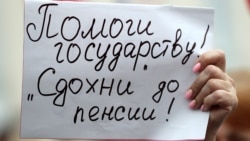 Помоги
государству!
„Сдохни до
пенсии!